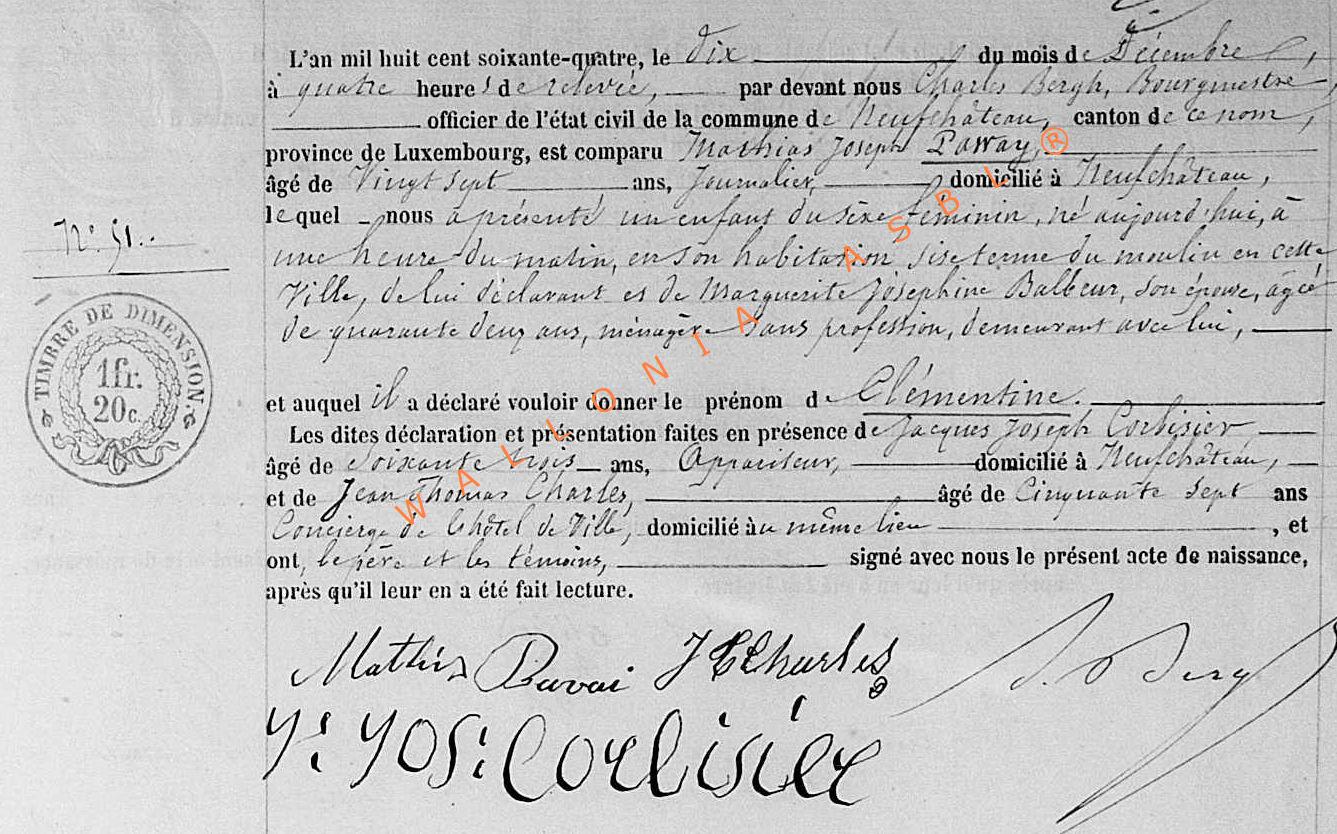 L'an mil huit cent soixante-quatre, le dix du mois de Décembre,
à quatre heures de relevée, par devant nous Charles Bergh, Bourgmestre,
officier de l'état civil de la commune de Neufchâteau, canton de ce nom,
province de Luxembourg, est comparu Mathias Joseph Paway,
âgé de Vingt sept ans, Journalier, domicilié à Neufchâteau,
lequel nous a présenté un enfant du sèxe féminin, né aujourd'hui, à
N° 51.
une heure du matin, en son habitation sise terme du moulin en cette
Ville, de lui déclarant et de Marguerite Joséphine Balbeur, son épouse, âgée
de quarante deux ans, ménagère sans profession, demeurant avec lui,
TIMBRE DE DIMENSION
1fr.
20c.
et auquel il a déclaré vouloir donner le prénom de Clémentine.
Les dites déclaration et présentation faites en présence de Jacques Joseph Corbisier
âgé de Soixante trois ans, Appariteur, domicilié à Neufchâteau,
et de Jean Thomas Charles, âgé de Cinquante sept ans
Concierge de l'hôtel de Ville, domicilié au même lieu, et
ont, le père et les témoins, signé avec nous le présent acte de naissance,
après qu'il leur en a été fait lecture.
Mathias Pavai JTCharles
J. Jos: Corbisier
WALLONIA ASBL ®